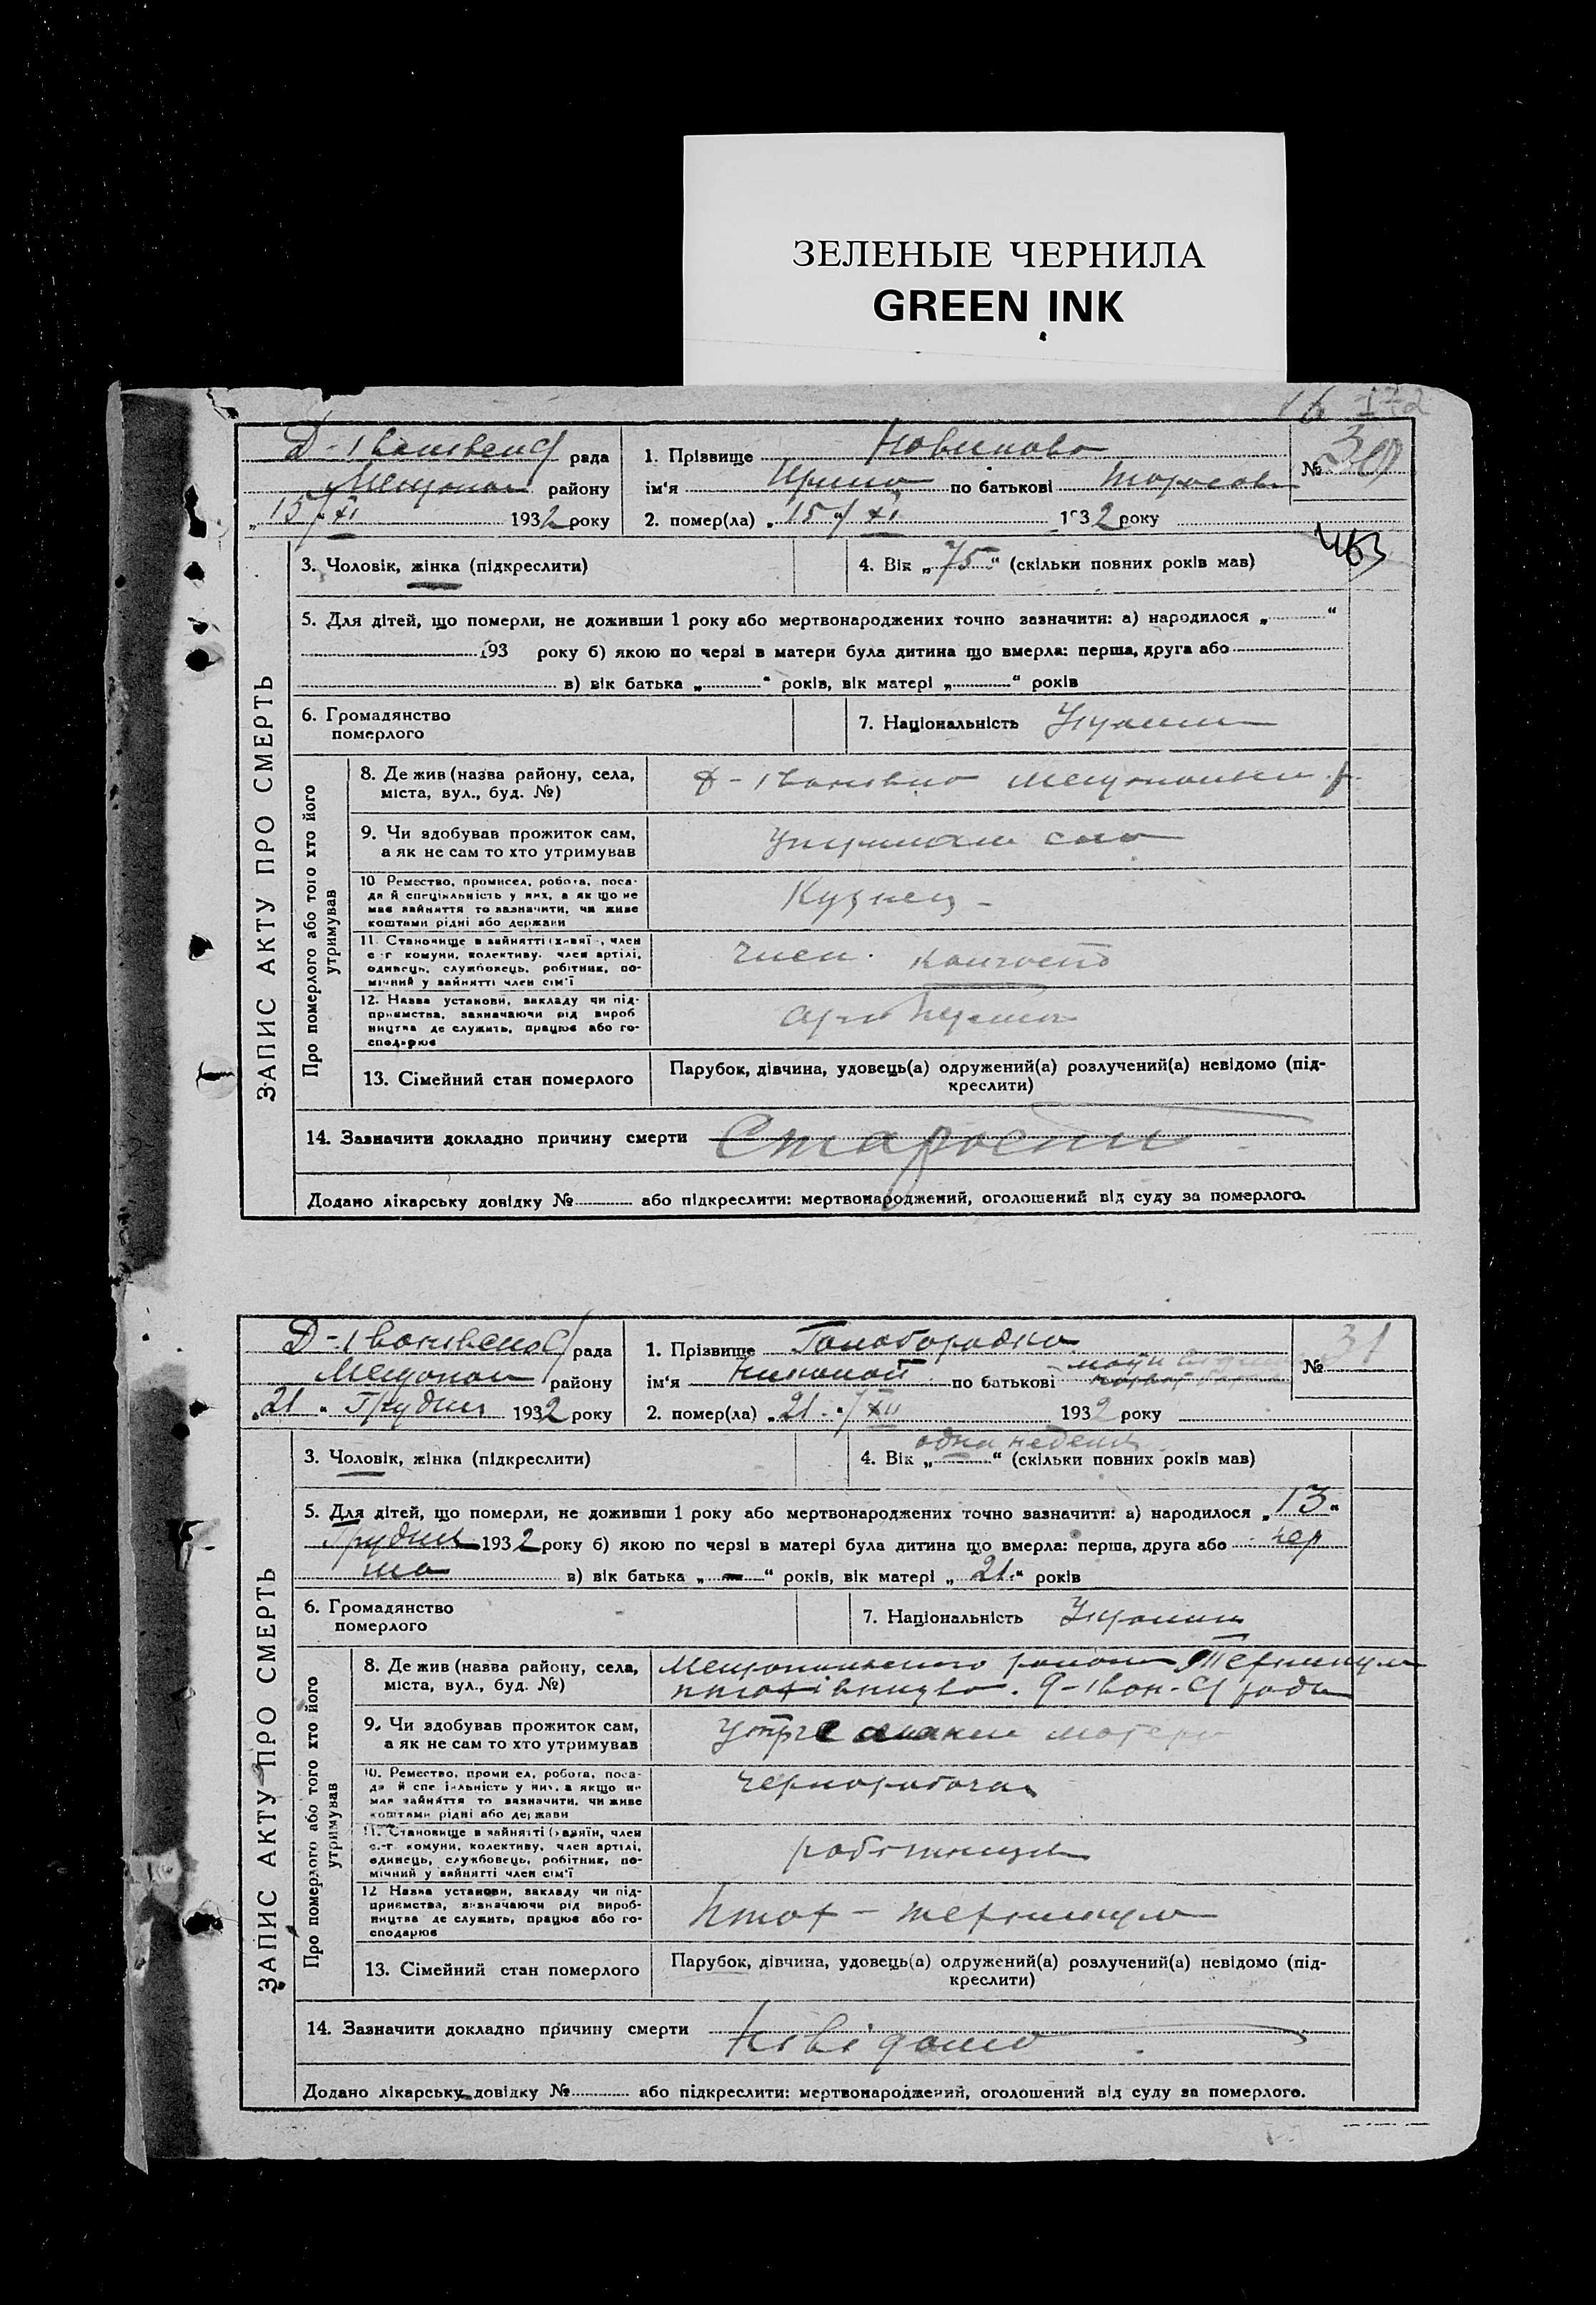 ЗЕЛЕНЫЕ ЧЕРНИЛА
GREEN INK
16 172
рада 1. Прізвище Новикова № 30
району ім'я по батькові
„15"/XI 1932 року 2. помер(ла) „15"/XI 1932 року
463
3. Чоловік, жінка (підкреслити) 4. Вік „75" (скільки повних років мав)
5. Для дітей, що померли, не доживши 1 року або мертвонароджених точно зазначити: а) народилося „ "
193 року б) якою по черзі в матери була дитина що вмерла: перша, друга або
в) вік батька „ " років, вік матері „ " років
6. Громадянство
померлого
7. Національність
ЗАПИС АКТУ ПРО СМЕРТЬ
Про померлого або того хто його
утримував
8. Де жив (назва району, села,
міста, вул., буд. №)
9. Чи здобував прожиток сам,
а як не сам то хто утримував
10 Ремество, промисел, робота, поса-
да й спеціяльність у них, а як що не
має зайняття то зазначити, чи живе
коштами рідні або держави
Кузнец -
11. Становище в зайнятті (хазяїн, член
с.-г комуни, колективу, член артілі,
одинець, службовець, робітник, по-
мічний у зайнятті член сім'ї
член.
12. Назва установи, закладу чи під-
приємства, зазначаючи рід вироб
ництва де служить, працює або го-
сподарює
13. Сімейний стан померлого
Парубок, дівчина, удовець(а) одружений(а) розлучений(а) невідомо (під-
креслити)
14. Зазначити докладно причину смерти Старости
Додано лікарську довідку № або підкреслити: мертвонароджений, оголошений від суду за померлого.
рада 1. Прізвище Голобородко № 31
району ім'я Николай по батькові
„21" Грудня 1932 року 2. помер(ла) „21"/XII 1932 року
одна неделя
3. Чоловік, жінка (підкреслити) 4. Вік „ " (скільки повних років мав)
5. Для дітей, що померли, не доживши 1 року або мертвонароджених точно зазначити: а) народилося „13"
Грудня 1932 року б) якою по черзі в матері була дитина що вмерла: перша, друга або пер
ша в) вік батька „ - " років, вік матері „21" років
6. Громадянство
померлого
7. Національність
ЗАПИС АКТУ ПРО СМЕРТЬ
Про померлого або того хто його
утримував
8. Де жив (назва району, села,
міста, вул., буд. №)
9. Чи здобував прожиток сам,
а як не сам то хто утримував
матери
10. Ремество, промисел, робота, поса-
да й спеціяльність у них, а якщо не
має зайняття то зазначити, чи живе
коштами рідні або держави
чернорабочая
11. Становище в зайнятті (хазяїн, член
с.-г. комуни, колективу, член артілі,
одинець, службовець, робітник, по-
мічний у зайнятті член сім'ї
работница
12 Назва установи, закладу чи під-
приємства, зазначаючи рід вироб-
ництва де служить, працює або го-
сподарює
13. Сімейний стан померлого
Парубок, дівчина, удовець(а) одружений(а) розлучений(а) невідомо (під-
креслити)
14. Зазначити докладно причину смерти Невідомо
Додано лікарську довідку № або підкреслити: мертвонароджений, оголошений від суду за померлого.